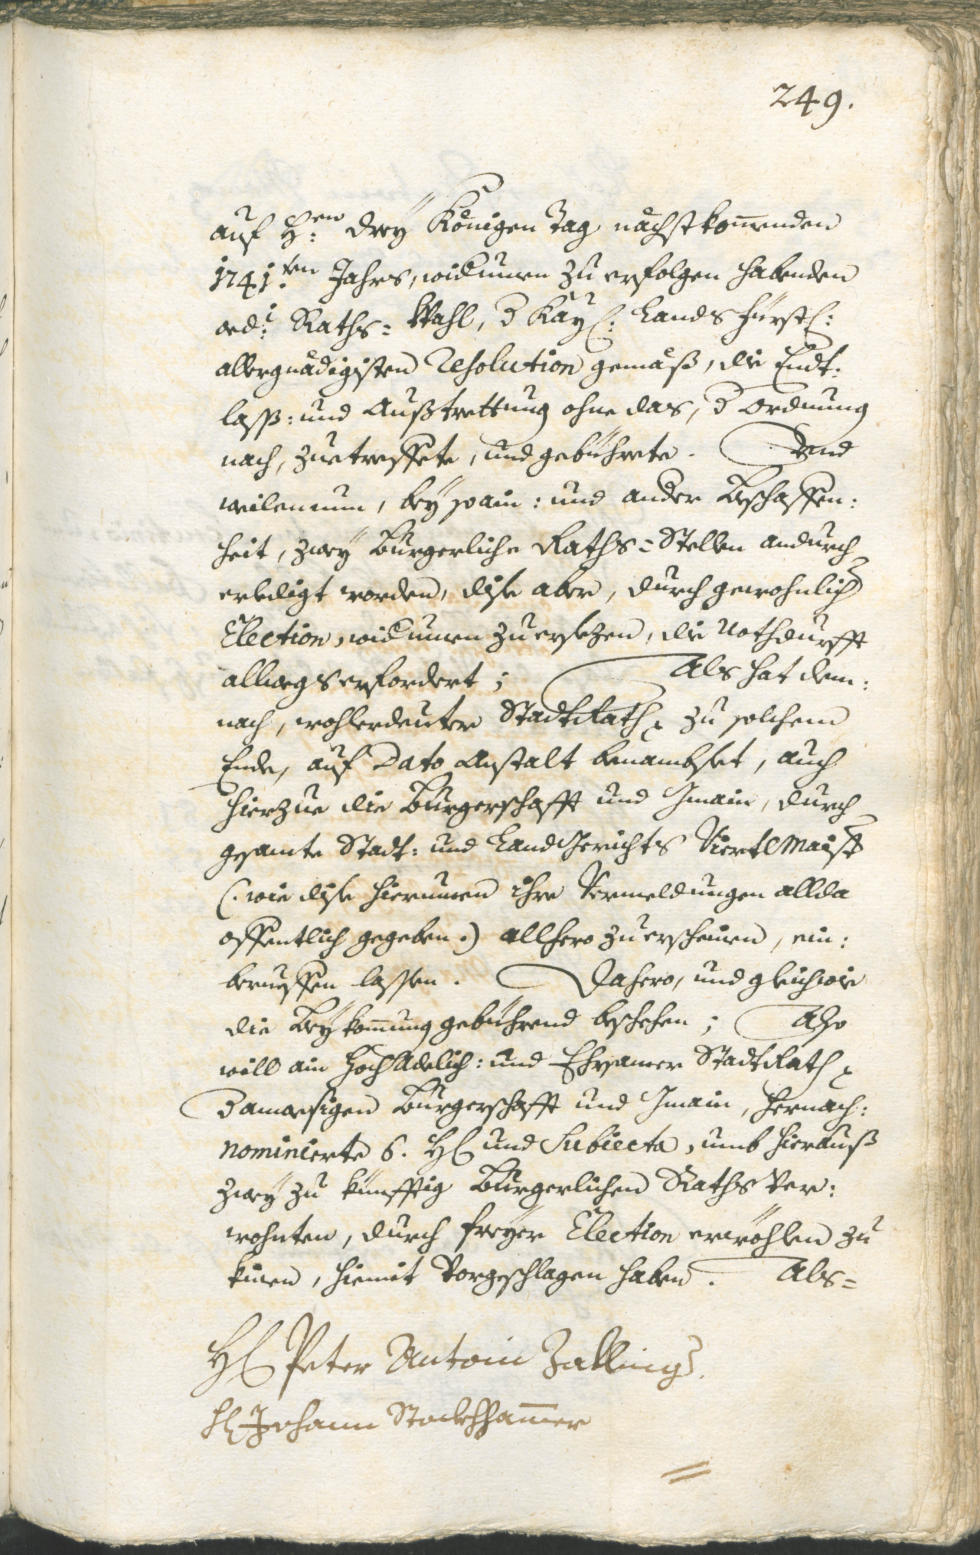 249.
auf H:en drey Königen Tag nächstkom̅enden
1741.ten Jahrs, widumen zu erfolgen habenden
ord: Raths= Wahl, d Kay: Landsfürstl:
allergnädigisten Resolution gemäß, die Endt:
lass: und Außtrettung ohne das, d ordnung
nach, zuetreffete, und gebührete. Und
weilen nun, bey so ain: und ander Beschaffen:
heit, zwey Burgerliche Raths=Stellen andurch
erledigt worden, dise aber, durch gewohnlich
Election, widumen zu ersezen, die Nothdurfft
allwegs erfordert; Als hat dem:
nach, wohlerdeuter StadtRath, zu solchem
Ende, auf Dato Anstalt benambset, auch
hierzue die Burgerschafft und Gmain, durch
gesamte Stadt: und LandGerichts ViertlMaist
(: wie dise hierumen ihre Vermeldungen allda
offentlich gegeben :) allhero zu erscheinen, ein:
berueffen lassen. Dahero, und gleichwie
die Beykom̅ung gebührend beschehen; Also
will ain HochAdelich: und Ehrsamer StadtRath,
d anwesigen Burgerschafft und Gmain, hernach:
nominierte 6. Hl und Subiecta, umb hierauß
zwey zu künfftig Burgerlichen Raths Ver:
wohnten, durch freyer Election erwöhlen zu
kinen, hiemit Vorgeschlagen haben. Als=
Hl Peter Antoni Zallinger.
Hl Johann Stockhham̅er